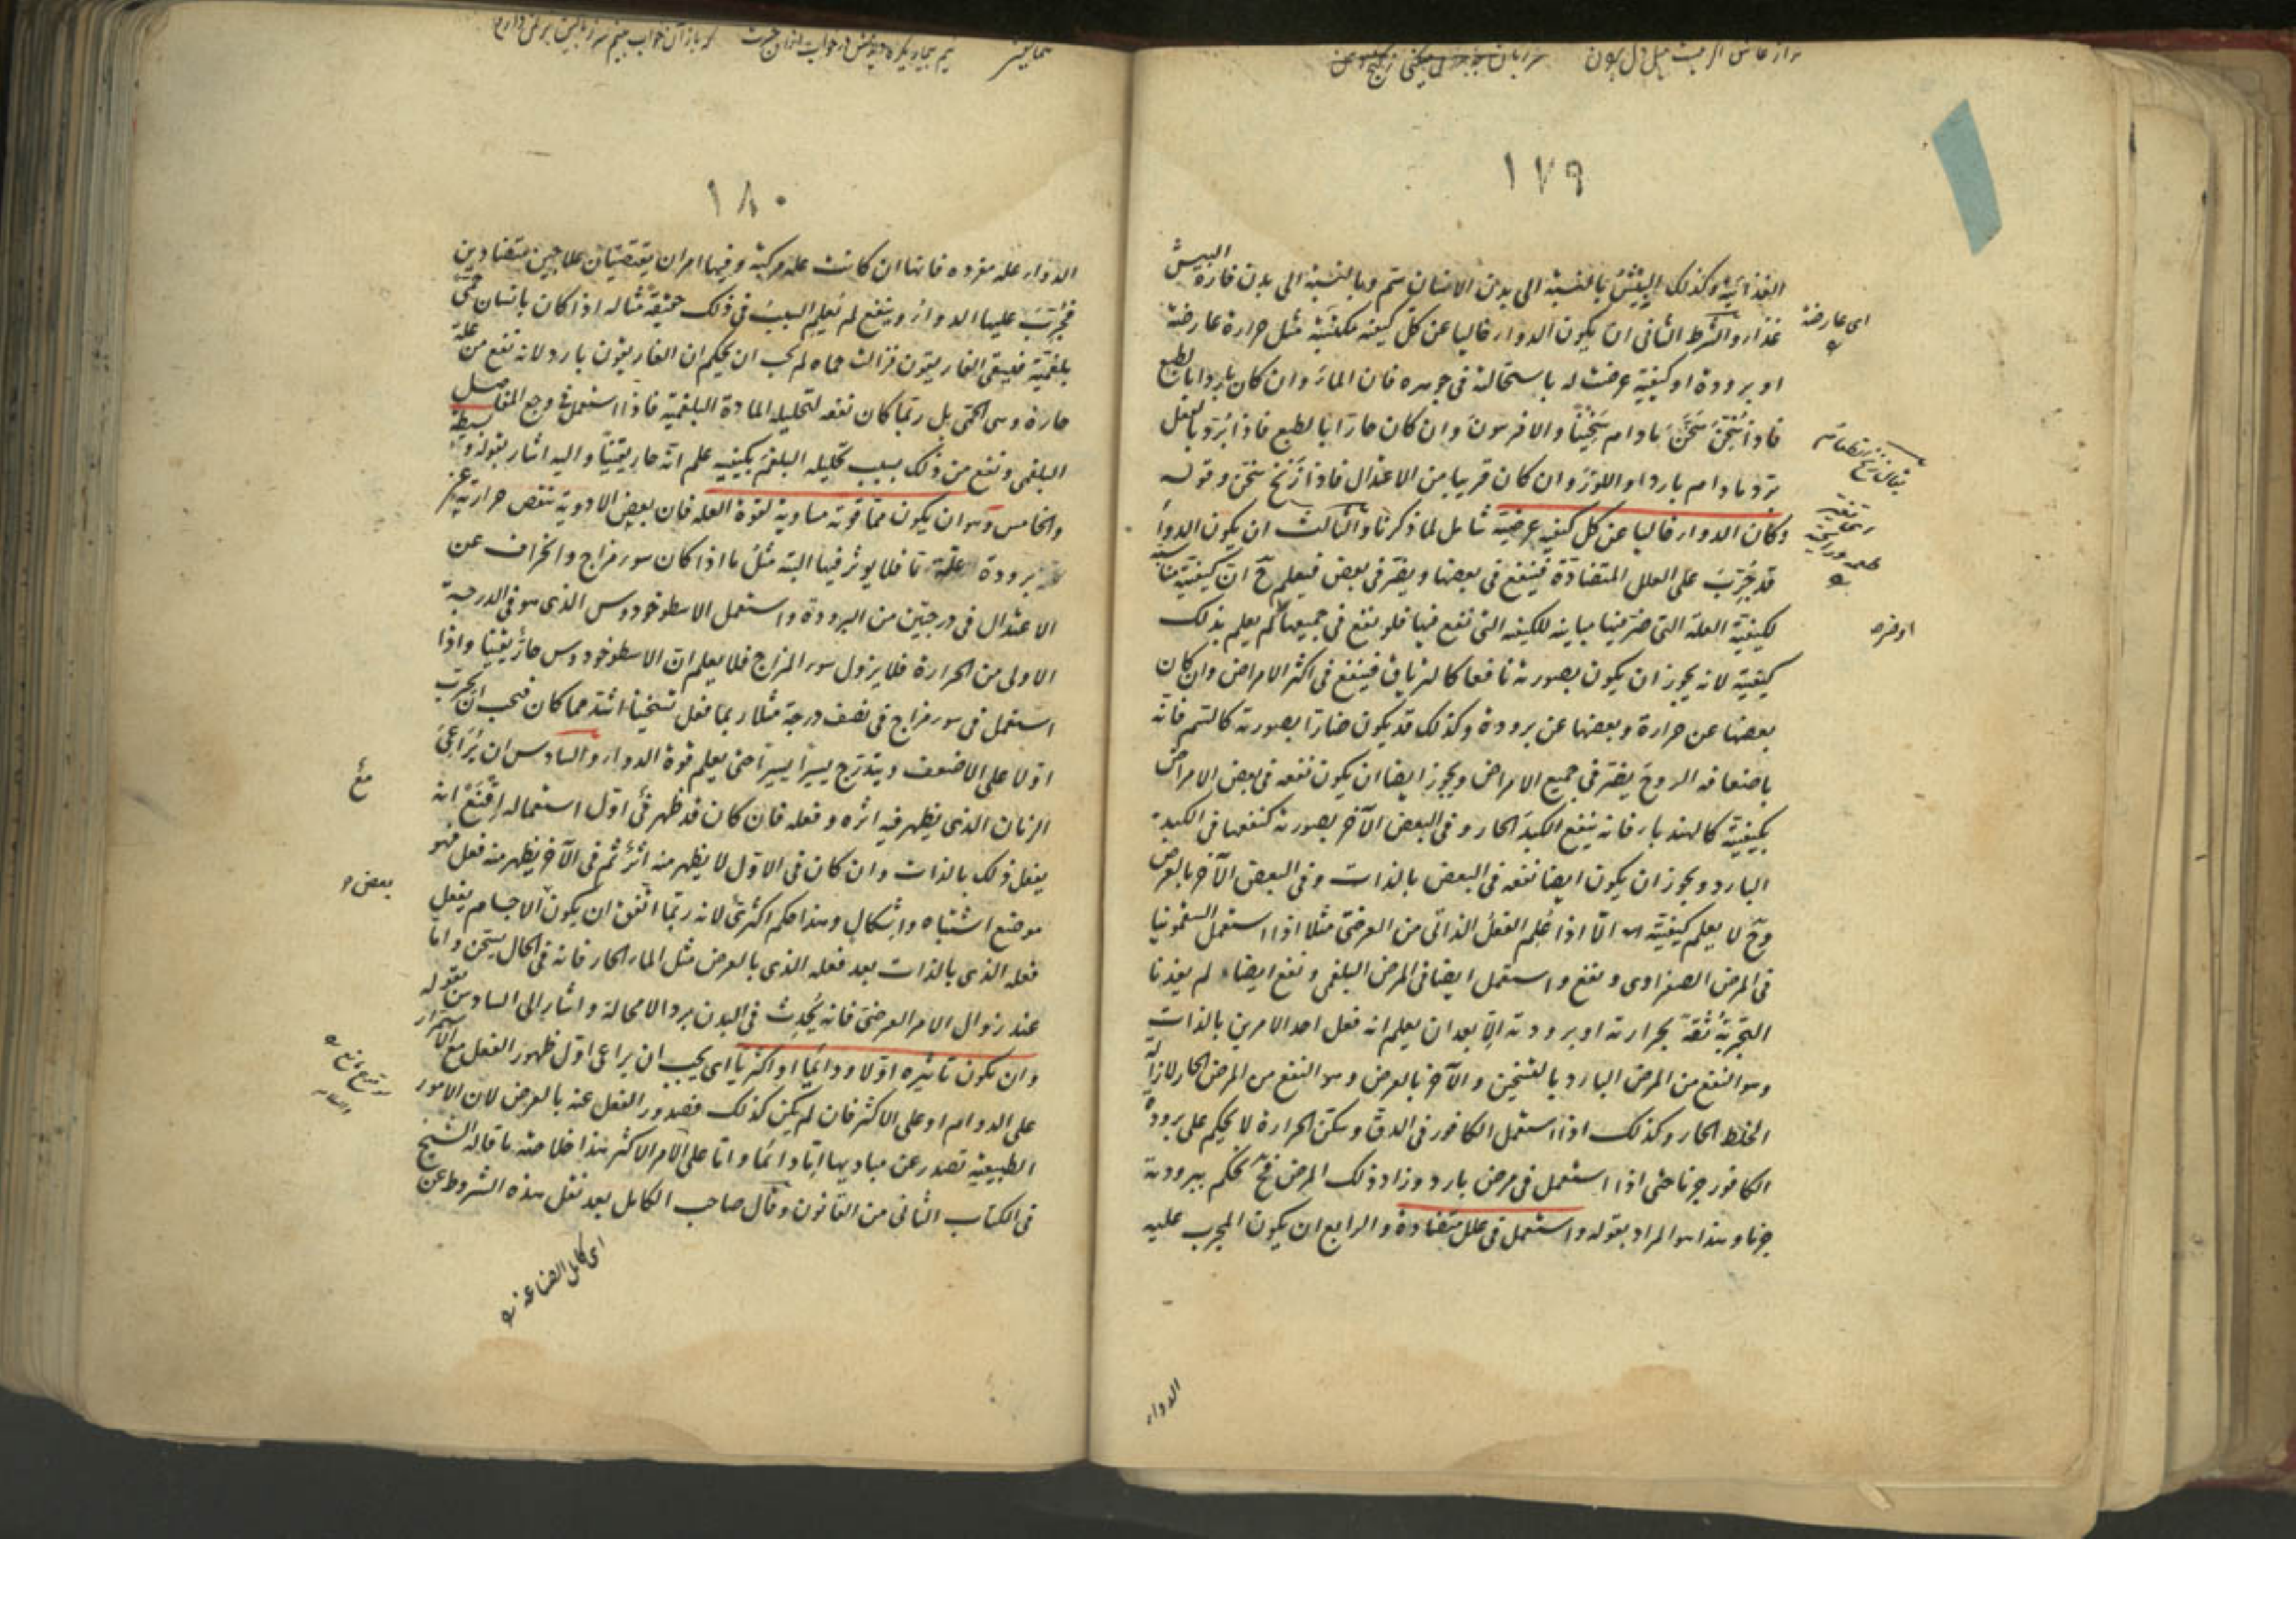 ١٧٩
الغذائية وكذلك البيش بالنسبة الى بدن الانسان سم وبالنسبة الى بدن فارة البيش
غذاء والشرط الثانى ان يكون الدواء خاليا عن كل كيفية مكتسبة مثل حرارة عارضة
او برودة او كيفية عرضت له باستحالة فى جوهره فان الماء وان كان باردا بالطبع
فاذا سُخّن سَخَّن ما دام سخينا والافربيون وان كان حارا بالطبع فاذا برد بالفعل
برد ما دام باردا واللوز وان كان قريبا من الاعتدال فاذا زنخ سخن وقوله
وكان الدواء خاليا عن كل كيفية عرضية شامل لما ذكرنا والثالث ان يكون الدواء
قد جُرّبَ على العلل المتضادة فينفع فى بعضها ويضر فى بعض فيعلم ح ان كيفيته مناسبة
لكيفية العلة التى ضر فيها مباينة للكيفية التى نفع فيها فلو نفع فى جميعها لم يعلم بذلك
كيفيته لانه يجوز ان يكون بصورته نافعا كالترياق فينفع فى اكثر الامراض وان كان
بعضها عن حرارة وبعضها عن برودة وكذلك قد يكون ضارا بصورته كالسم فانه
باضعافه الروح يضر فى جميع الامراض ويجوز ايضا ان يكون نفعه فى بعض الامراض
بكيفيته كالهندبا فانه ينفع الكبد الحار وفى البعض الآخر بصورته كنفعها فى الكبد
البارد ويجوز ان يكون ايضا نفعه فى البعض بالذات وفى البعض الآخر بالعرض
وح لا يعلم كيفيته الا اذا عُلم الفعل الذاتى من العرضى مثلا اذا استعمل السقمونيا
فى المرض الصفراوى ونفع واستعمل ايضا فى المرض البلغمى ونفع ايضا لم يفدنا
التجربة ثقة بحرارته او برودته الا بعد ان يعلم انه فعل احد الامرين بالذات
وهو النفع من المرض البارد بالتسخين والآخر بالعرض وهو النفع من المرض الحار لازالة
الخلط الحار وكذلك اذا استعمل الكافور فى الدق وسكن الحرارة لا يحكم على برودة
الكافور جزما حتى اذا استعمل فى مرض بارد وزاد ذلك المرض فح نحكم ببرودته
جزما وهذا هو المراد بقوله واستعمل فى علل متضادة والرابع ان يكون المجرب عليه
الدواء
اى عارضة
او ضره
١٨٠
الدواء علة مفردة فانها ان كانت علة مركبة وفيها امران يقتضيان علاجين متضادين
فجُرّبَ عليها الدواء وينفع لم يُعلم السبب فى ذلك حقيقة مثاله اذا كان بانسان حمى
بلغمية فسقى الغاريقون فزالت حماه لم يجب ان يحكم ان الغاريقون بارد لانه نفع من علة
حارة وهى الحمى بل ربما كان نفعه لتحليله المادة البلغمية فاذا استعمل فى وجع المفاصل
البلغمى ونفع من ذلك بسبب تحليله البلغم بكيفيته علم انه حار يقينا واليه اشار بقوله و بسيطة
والخامس وهو ان يكون مما قوته مساوية لقوة العلة فان بعض الادوية تنقص حرارته عن
برودة علة ما فلا يوثر فيها البتة مثل ما اذا كان سوء مزاج وانحراف عن
الاعتدال فى درجتين من البرودة واستعمل الاسطوخودوس الذى هو فى الدرجة
الاولى من الحرارة فلا يزول سوء المزاج فلا يعلم ان الاسطوخودوس حار يقينا واذا
استعمل فى سوء مزاج فى نصف درجة مثلا ربما فعل تسخينا اشد مما كان فيجب ان يجرب
اولا على الاضعف ويتدرج يسيرا يسيرا حتى يعلم قوة الدواء والسادس ان يُراعى
الزمان الذى يظهر فيه اثره وفعله فان كان قد ظهر فى اول استعماله اقنع انه
يفعل ذلك بالذات وان كان فى الاول لا يظهر منه اثر ثم فى الآخر يظهر منه فعل فهو
موضع اشتباه واشكال وهذا حكم اكثرى لانه ربما اتفق ان يكون الاجسام يفعل
فعله الذى بالذات بعد فعله الذى بالعرض مثل الماء الحار فانه فى الحال يسخن واما
عند زوال الامر العرضى فانه يحدث فى البدن بردا لا محالة واشار الى السادس بقوله
وان يكون تاثيره اولا ودائما او اكثريا اى يجب ان يراعى اول ظهور الفعل مع الاستمرار
على الدوام او على الاكثر فان لم يكن كذلك فصدور الفعل عنه بالعرض لان الامور
الطبيعية تصدر عن مباديها اما دائما واما على الامر الاكثر هذا خلاصة ما قاله الشيخ
فى الكتاب الثانى من القانون وقال صاحب الكامل بعد نقل هذه الشروط عن
اى كامل الصناعة
بعض